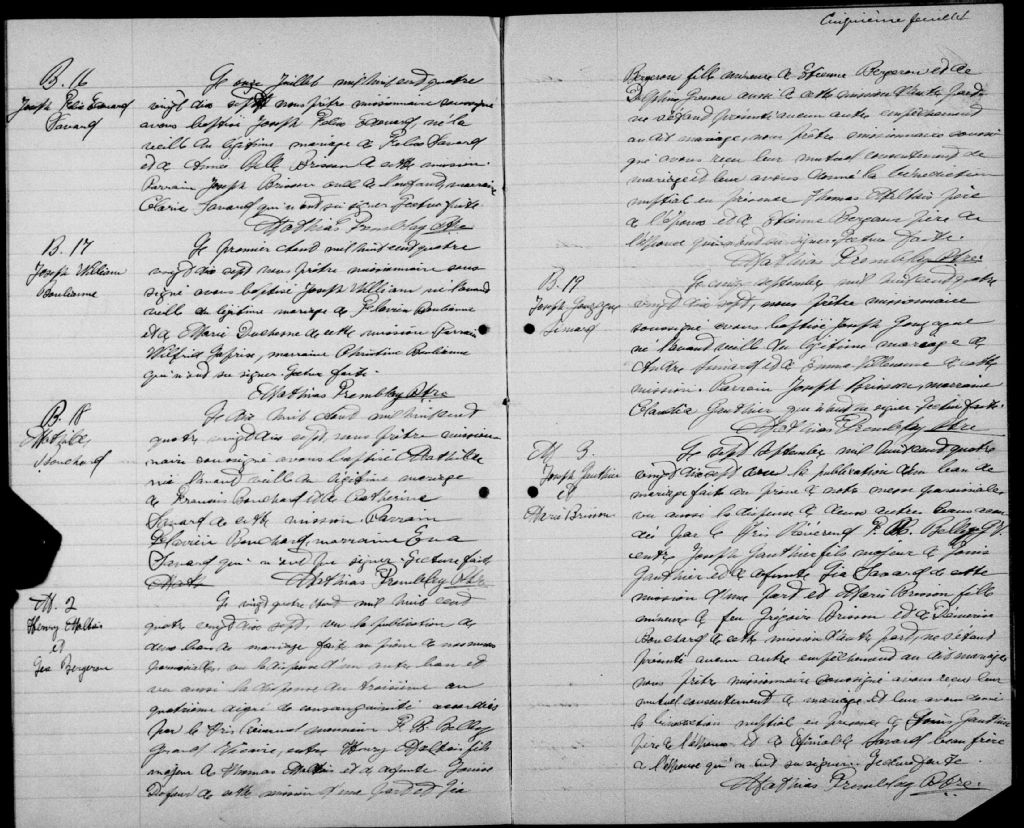 B. 16
Joseph Felix Edouard
Savard
Le onze Juillet mil huit cent quatre
vingt dix sept nous prêtre missionnaire soussigné
avons baptisé Joseph Felix Edouard, né la
veille du légitime mariage de Felix Savard
et de Anna Brisson de cette mission.
Parrain Joseph Brisson oncle de l'enfant, marraine
Clarie Savard qui n'ont su signer Lecture faite
Mathias Tremblay Ptre
B. 17
Joseph William
Boulianne
Le premier Aout mil huit cent quatre
vingt dix sept nous prêtre missionnaire sous
signé avons baptisé Joseph William né l'avant
veille du légitime mariage de Flavien Boulianne
et de Marie Duchesne de cette mission Parrain
Wilfrid marraine Christine Boulianne
qui n'ont su signer. Lecture faite.
Mathias Tremblay Ptre
B. 18
Mathilde
Bouchard
Le dix huit Aout mil huit cent
quatre vingt dix sept, nous prêtre mission-
naire soussigné avons baptisé Mathilde
née l'avant veille du légitime mariage
de Francois Bouchard et de Catherine
Savard de cette mission Parrain
Flavien Bouchard, marraine Eva
Savard qui n'ont pu signer. Lecture faite
Mathias Tremblay Ptre
M. 2
Henry Maltais
et
Géa Bergeron
Le vingt quatre Aout mil huit cent
quatre vingt dix sept, vu la publication de
deux bans de mariage faite au prône de nos messes
paroissiales, vu la dispense d'un autre ban et
vu aussi la dispense du troisième au
quatrième degré de consanguinité accordées
par le très Révérend monsieur F. X. Belley
Grand Vicaire, entre Henry Maltais fils
majeur de Thomas Maltais et de defunte Louise
Dufour de cette mission d'une part et Géa
Cinquième feuillet
Bergeron fille mineure de Etienne Bergeron et de
Delphine aussi de cette mission d'autre part
ne s'étant présenté aucun autre empêchement
au dit mariage, nous prêtre missionnaire soussi
gné avons reçu leur mutuel consentement de
mariage et leur avons donné la bénédiction
nuptial en présence Thomas Maltais père
de l'époux et de Etienne Bergeron père de
l'épouse qui n'ont su signer. Lecture faite.
Mathias Tremblay Ptre.
B. 19
Joseph Gonzague
Simard
Le septembre mil huit cent quatre
vingt dix sept, nous prêtre missionnaire
soussigné avons baptisé Joseph Gonzague
né l'avant veille du légitime mariage de
André Simard et de Emma Villeneuve de cette
mission. Parrain Joseph Brisson, marraine
Claudia Gauthier qui n'ont su signer Lecture faite.
Mathias Tremblay Ptre
M. 3.
Joseph Gauthier
et
Marie Brisson
Le sept septembre mil huit cent quatre
vingt dix sept vu la publication d'un ban de
mariage faite au prône de notre messe paroissiale,
vu aussi la dispense de deux autres bans accor
dés par le très Révérend F. X. Belley G. V.
entre Joseph Gauthier fils majeur de Louis
Gauthier et de defunte Géa Savard de cette
mission d'une part et Marie Brisson fille
mineure de feu Grégoire Brisson et de Démerise
Bouchard de cette mission d'autre part, ne s'étant
présenté aucun autre empêchement au dit mariage,
nous prêtre missionnaire soussigné avons reçu leur
mutuel consentement de mariage et leur avons donné
la bénédiction nuptial en présence de Louis Gauthier
père de l'époux et de Savard beau frère
de l'épouse qui n'ont su signer. Lecture faite.
Mathias Tremblay Ptre.